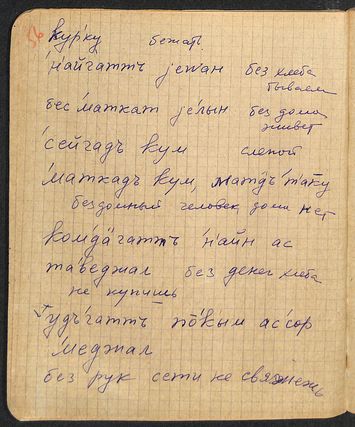 56
кур'ку бежать
н'айгаттъ јеwан без хлеба
бываем
бес 'маткат је'лын без дома
живет
'сейгадъ кум слепой
'маткадъ кум, матдъ 'т'аку
бездомный человек дома нет
ком'дӓ'гаттъ 'н'айн ас
та'веджал без денег хлеба
не купишь
'удъ'гаттъ по̄'кым ас'сор
'меджал
без рук сети не свяжешь